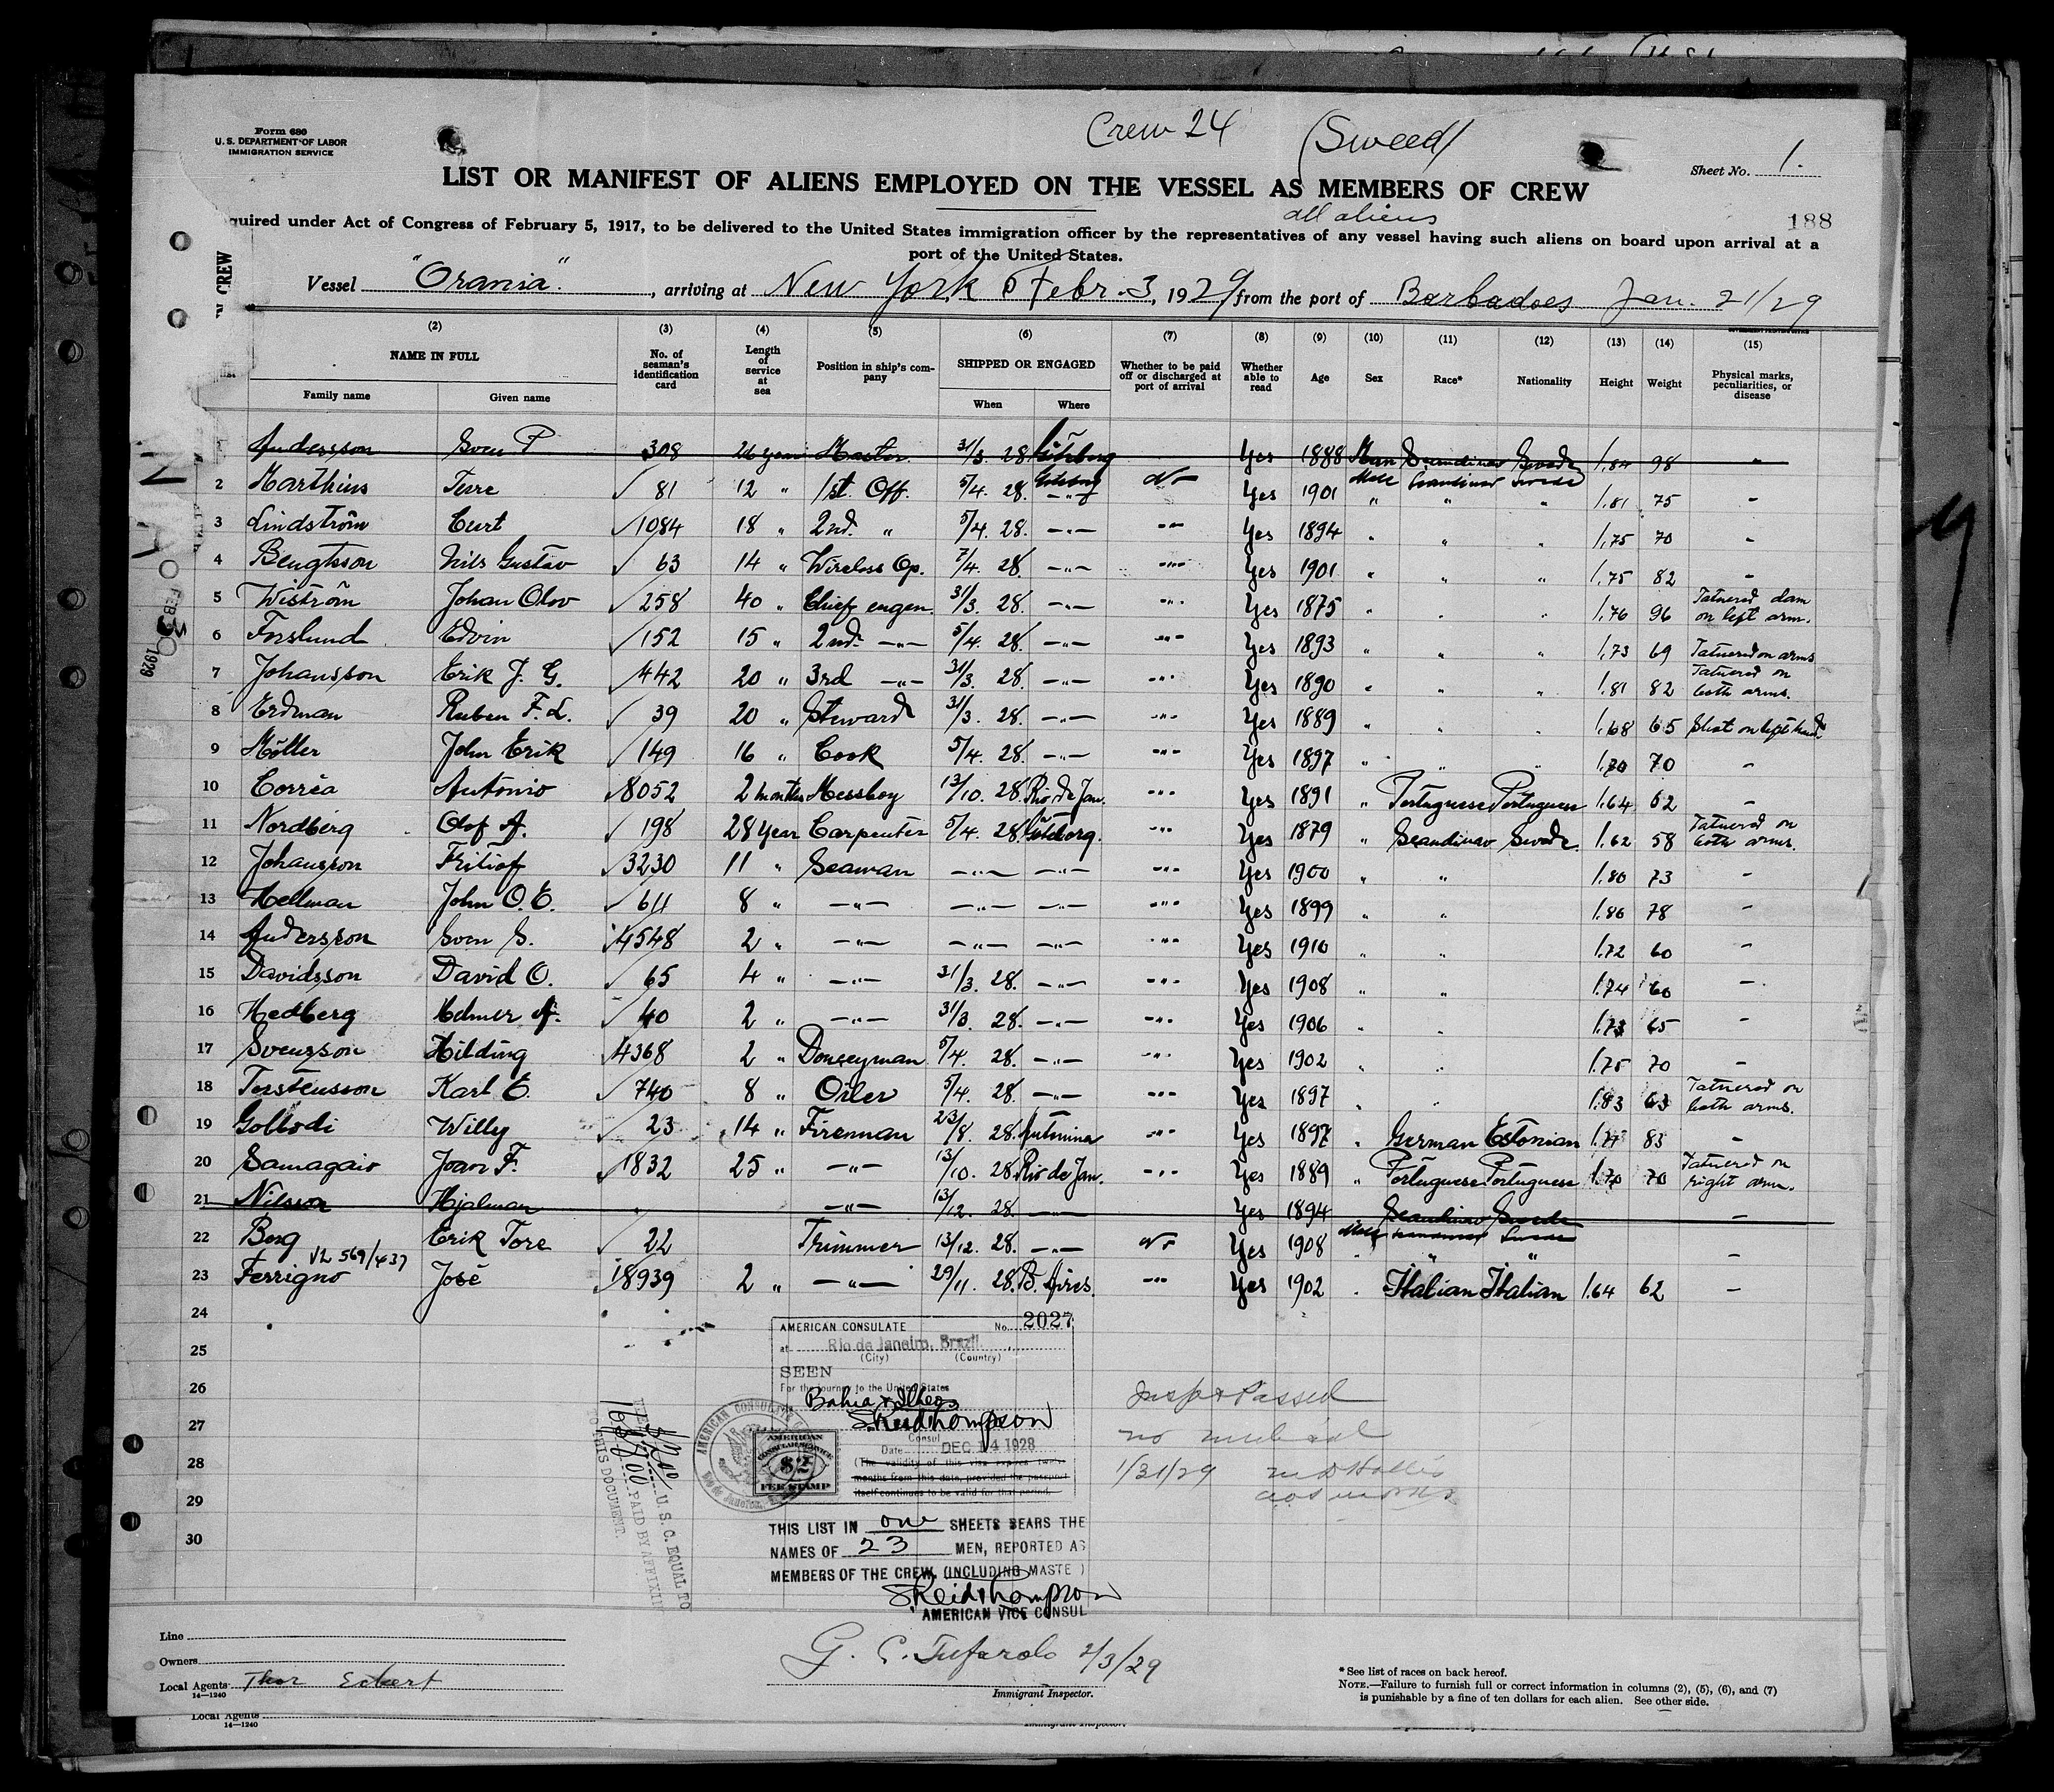 Form 680
U. S. DEPARTMENT OF LABOR
IMMIGRATION SERVICE
Crew 24 (Sweed)
Sheet No. 1.
LIST OR MANIFEST OF ALIENS EMPLOYED ON THE VESSEL AS MEMBERS OF CREW
all aliens
188
quired under Act of Congress of February 5, 1917, to be delivered to the United States immigration officer by the representatives of any vessel having such aliens on board upon arrival at a
port of the United States.
CREW
Vessel "Orania", arriving at New York Febr. 3, 1929, from the port of Barbadoes Jan. 21/29
(2) (3) (4) (5) (6) (7) (8) (9) (10) (11) (12) (13) (14) (15)
NAME IN FULL
Family name Given name
No. of seaman's identification card
Length of service at sea
Position in ship's company
SHIPPED OR ENGAGED
When Where
Whether to be paid off or discharged at port of arrival
Whether able to read
Age Sex Race* Nationality Height Weight
Physical marks, peculiarities, or disease
1 Andersson Sven P 308 26 years Master 31/3 28 Göteborg Yes 1888 Man Scandinav Swede 1.84 98 "
2 Marthins Terre √ 81 12 " 1st. Off. 5/4. 28. Göteborg No Yes 1901 Male Scandinav Swede 1.81 75 -
3 Lindström Curt √ 1084 18 " 2nd. " 5/4. 28. -"- -"- Yes 1894 " " " 1.75 70 -
4 Bengtsson Nils Gustav √ 63 14 " Wireless Op. 7/4. 28. -"- -"- Yes 1901 " " " 1.75 82 -
5 Wiström Johan Olov √ 258 40 " Chief engen. 31/3. 28. -"- -"- Yes 1875 " " " 1.76 96 Tatuered dam on left arm.
6 Forslund Edvin √ 152 15 " 2nd. -"- 5/4. 28. -"- -"- Yes 1893 " " " 1.73 69 Tatuered on arms
7 Johansson Erik J. G. √ 442 20 " 3rd -"- 31/3. 28. -"- -"- Yes 1890 " " " 1.81 82 Tatuered on both arms.
8 Erdman Ruben F. L. √ 39 20 " Steward 31/3. 28. -"- -"- Yes 1889 " " " 1.68 65 Shot on left hand.
9 Möller John Erik √ 149 16 " Cook 5/4. 28. -"- -"- Yes 1897 " " " 1.70 70 -
10 Corrêa António √ 8052 2 months Messboy 13/10. 28. Rio de Jan. -"- Yes 1891 " Portuguese Portuguese 1.64 62 -
11 Nordberg Olof A. √ 198 28 Year Carpenter 5/4. 28. Göteborg. -"- Yes 1879 " Scandinav Swede. 1.62 58 Tatuered on both arms.
12 Johansson Fritiof √ 3230 11 " Seaman -"- -"- -"- Yes 1900 " " 1.80 73 -
13 Hellman John O. E. √ 611 8 " -"- -"- -"- -"- Yes 1899 " " 1.86 78 -
14 Andersson Sven S. √ 4548 2 " -"- -"- -"- -"- Yes 1910 " " 1.72 60 -
15 Davidsson David O. √ 65 4 " -"- 31/3. 28. -"- -"- Yes 1908 " " 1.74 60 -
16 Hedberg Helmer A. √ 40 2 " -"- 31/3. 28. -"- -"- Yes 1906 " " 1.73 65 -
17 Svensson Hilding √ 4368 2 " Donceyman 5/4. 28. -"- -"- Yes 1902 " " 1.75 70 -
18 Torstensson Karl E. √ 740 8 " Oiler 5/4. 28. -"- -"- Yes 1897 " " 1.83 63 Tatuered on both arms.
19 Gollodi Willy √ 23 14 " Fireman 23/8. 28. -"- Yes 1897 " German Estonian 1.77 83 -
20 Samagaio Joao F. √ 1832 25 " -"- 13/10. 28. Rio de Jan. -"- Yes 1889 " Portuguese Portuguese 1.70 70 Tatuered on right arm.
21 Nilsson Hjalmar -"- 13/12. 28. -"- Yes 1894 Scandinav Swede -
22 Berg Erik Tore √ 22 Trimmer 13/12. 28. -"- No Yes 1908 Male Scandinav Swede " " -
VL 569/437
23 Ferrigno José √ 18939 2 " -"- 29/11. 28. B. Aires. -"- Yes 1902 " Italian Italian 1.64 62 -
24
25
26
27
28
29
30
AMERICAN CONSULATE No. 2027
at Rio de Janeiro, Brazil.
(City) (Country)
SEEN
For the journey to the United States
Bahia & Ilheos
S. Reid Thompson
Consul
Date DEC 14 1928
(The validity of this visa expires twelve
months from this date, provided the passport
itself continues to be valid for that period.
AMERICAN CONSULAR SERVICE
$2
FEE STAMP
U. S. C. EQUAL TO
PAID BY AFFIXIN
TO THIS DOCUMENT.
Insp & Passed
no medical
1/31/29
THIS LIST IN one SHEETS BEARS THE
NAMES OF 23 MEN, REPORTED AS
MEMBERS OF THE CREW, (INCLUDING MASTE )
S. Reid Thompson
AMERICAN VICE CONSUL
FEB 3 1929
Line
Owners
Local Agents Thor Eckert
14—1240
G. C. Tufarolo 2/3/29
Immigrant Inspector.
* See list of races on back hereof.
NOTE.—Failure to furnish full or correct information in columns (2), (5), (6), and (7)
is punishable by a fine of ten dollars for each alien. See other side.
Local Agents
14—1240
Immigrant Inspector.